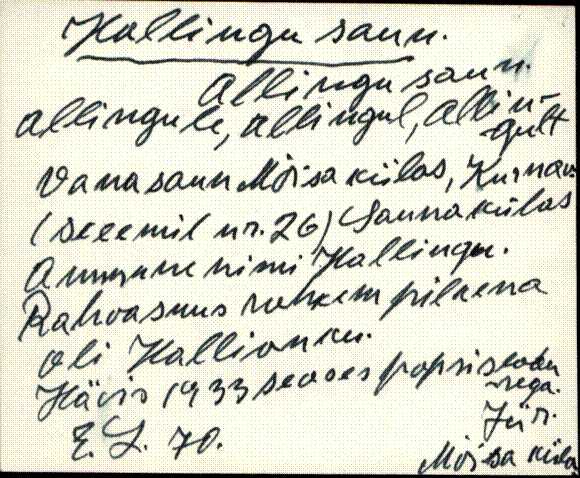 Hallingu saun.
Allingu saun.
Allingule, Allingul, Allin-
gult
Vana saun Mõisa külas, Kurnas
(seeemil nr. 26) Sauna külas
Ammune nimi Hallingu.
Rahvasuus rohkem pilkena
oli Hallionku.
Hävis 1933 seoses popsiskodu
-sega.
Jüri.
E. L. 70.
Mõisa küla